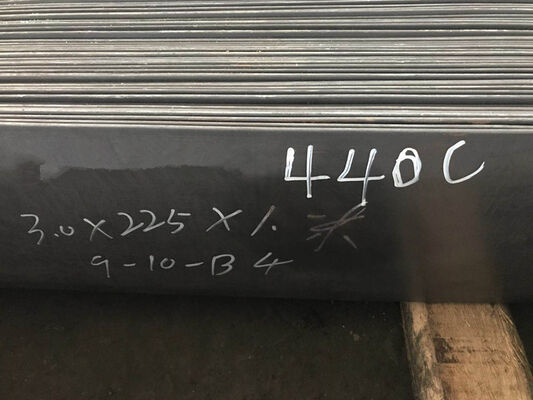 440C
3.0×225×1.米
9-10-B4